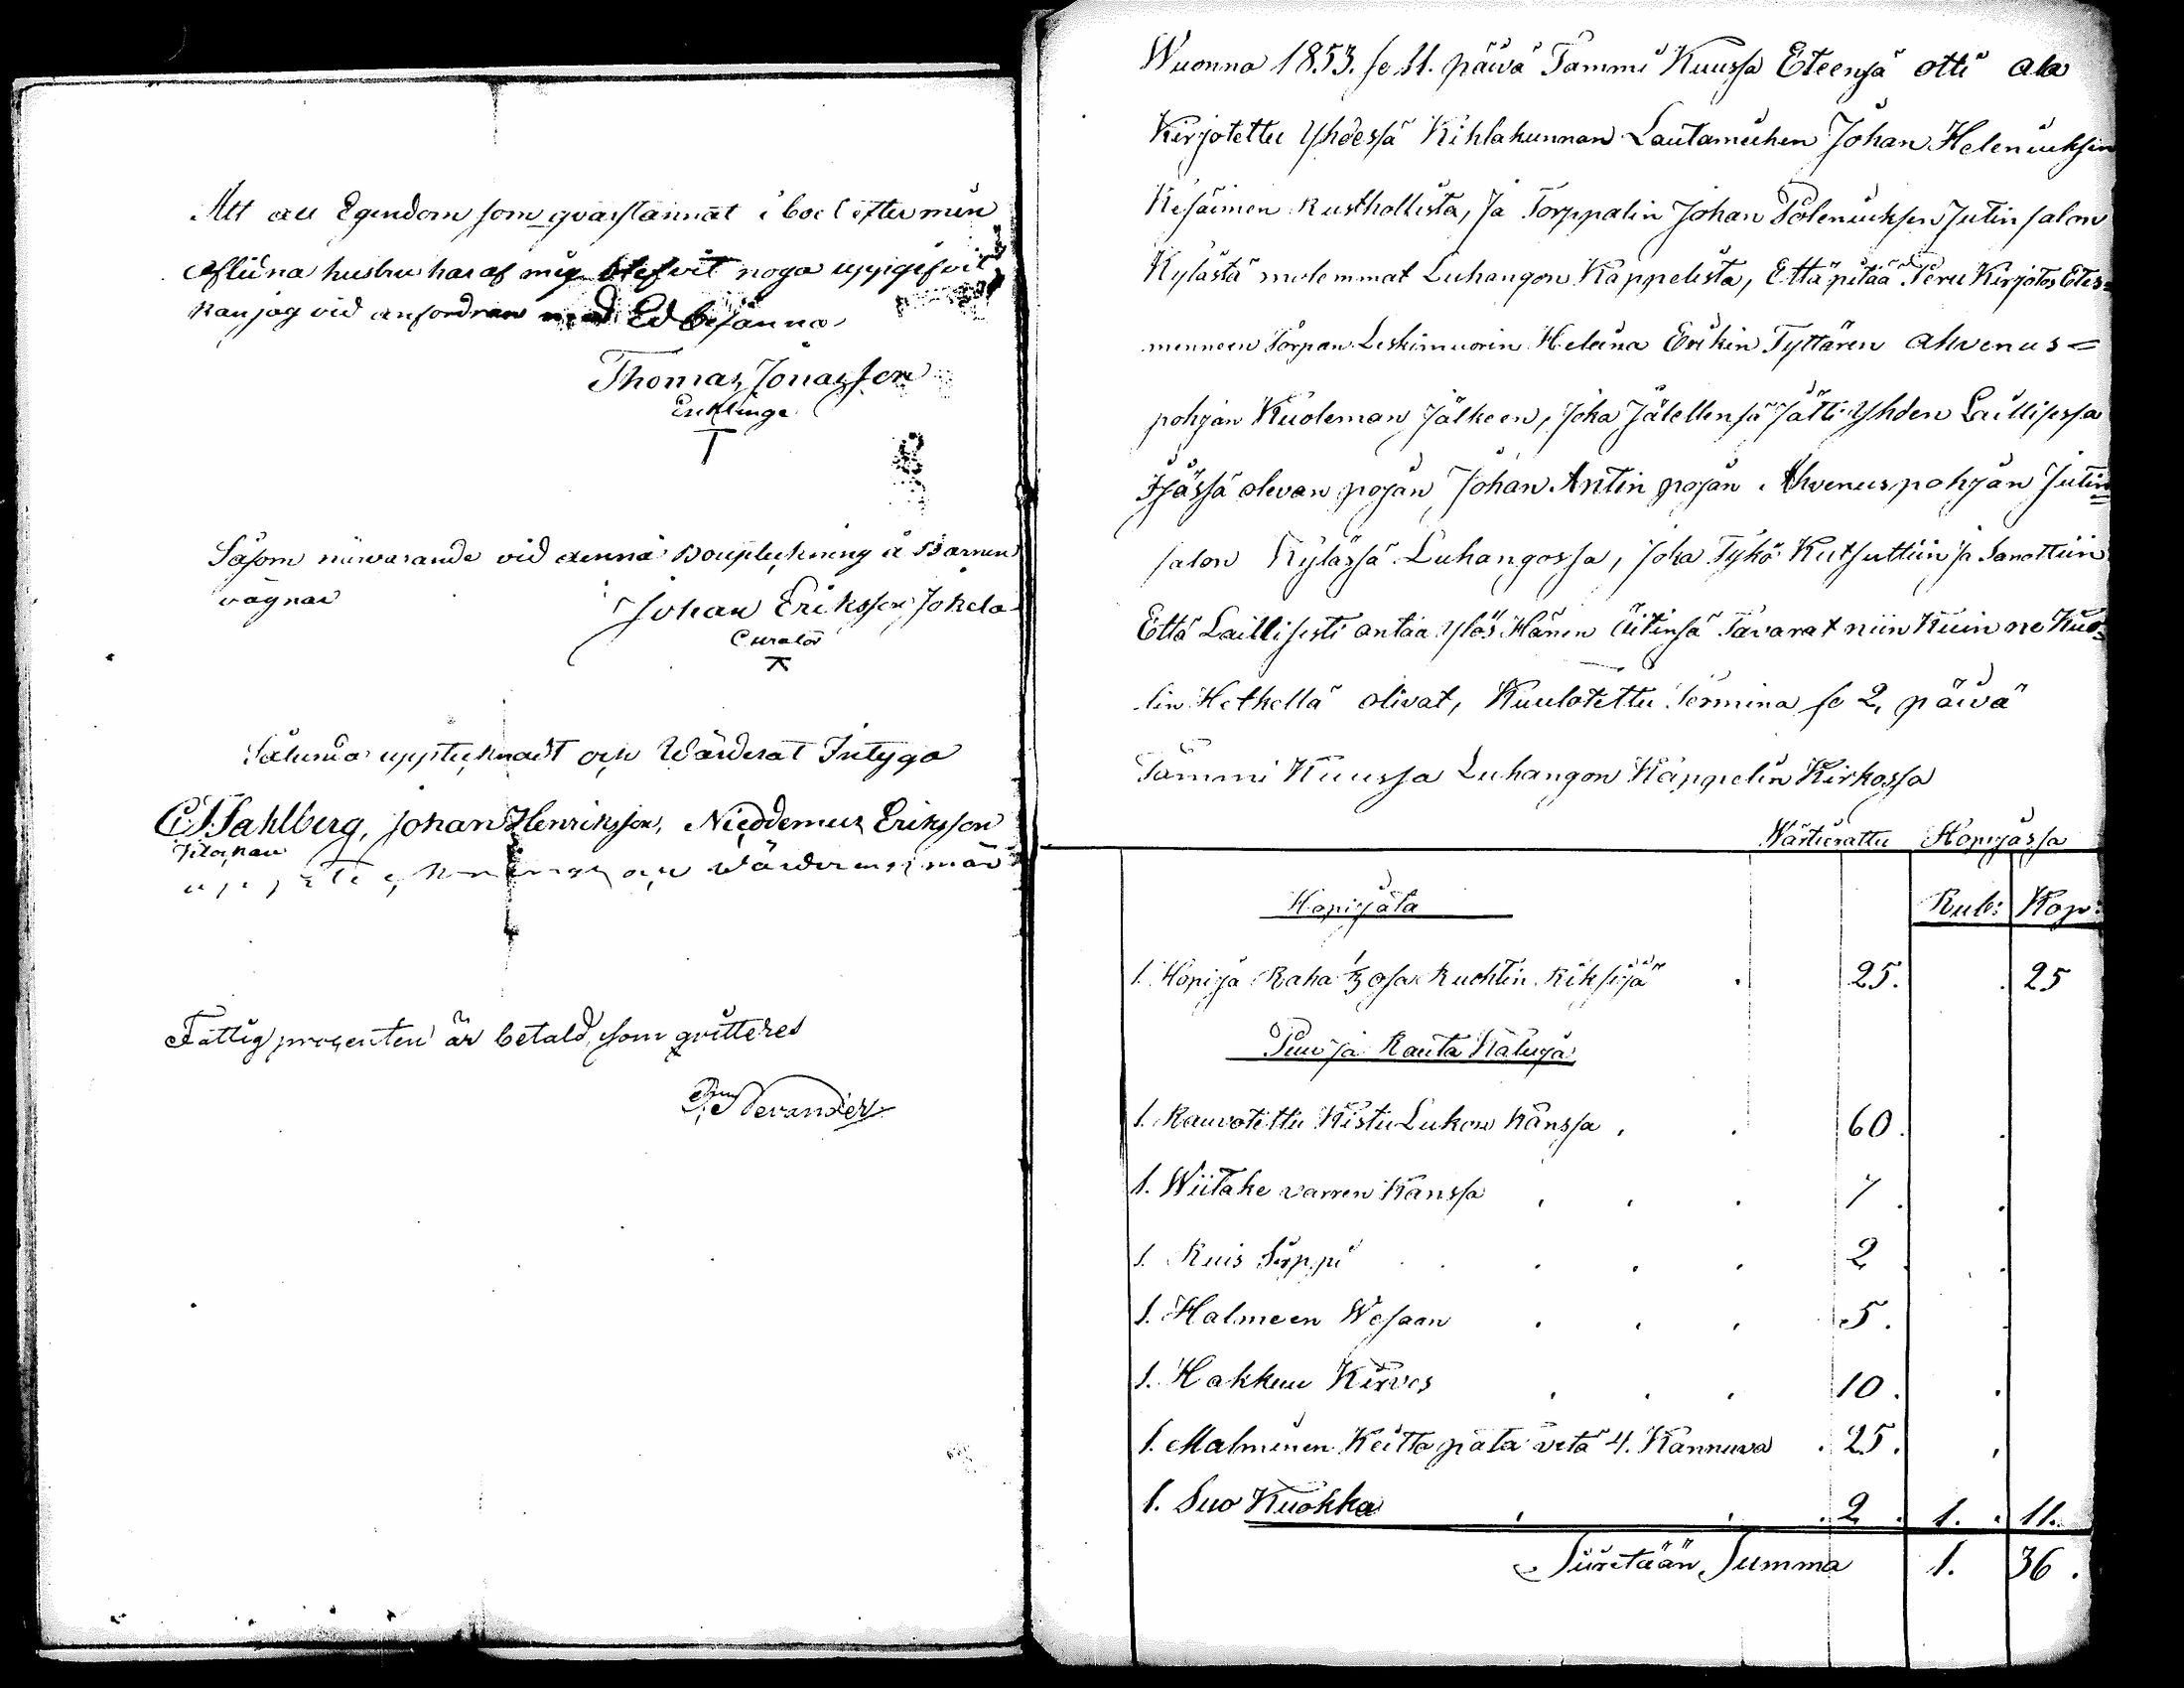 Att all Egendom som qvarlämnat i boet efter min
Afliedna hustru har af mig blefvit noga uppgifvit
kan jag vid anfordran med Ed besanna
Thomas Jonasson
Enklinge
T
Såsom närvarande vid denna Bouptekning å Barnens
vägnar Johan Eriksson Jokela
Curator
Sålunda upptecknadt och Wärderat Intyga
C. J. Sahlberg, Johan Henriksson, Nicodemus Eriksson
och Wärderingsmän
Fattigprocenten är betald, som qvitteres
Wuonna 1853. se 11. päivä Tammi Kuussa Eteensä otti ala
Kirjotettu Yhdessä Kihlakunnan Lautamiehen Johan Heleniuksen
Kesäimen Rusthollista, Ja Torppalin Johan Poleniuksen Jutinsalon
Kylästä molemmat Luhangon Kappelista, Että pitää Peru Kirjotos Edes-
menneen Torpan Leskimuorin Helena Erikin Tyttären Ahvenus=
pohjan Kuoleman Jälkeen, Joka Jälellensä Jätti Yhden Laillisessa
Ijässä olevan pojan, Johan Antin pojan Ahvenuspohjan Jutin=
salon Kylässä Luhangossa, Joka Tykö Kutsuttiin ja Sanottiin
Että Laillisesti antaa Ylös Hänen Äitinsä Tavarat niin Kuin ne Kuo=
lin Hetkellä olivat, Kuulotettu Termina se 2, päivä
Tammi Kuussa Luhangon Kappelin Kirkossa
Wärtierattu Hopijassa
Hopijata Rub: Kop:
1. Hopija Raha 1/3 osa Ruohtin Riksijä 25. 25
Puu ja Rauta Kaluja
1. Rauvotettu Kistu Lukon Kanssa 60.
1. Wiitake varren Kanssa 7.
1. Ruis Sirppi 2
1. Halmeen Wesaan 5.
1. Hakkuu Kirves 10.
1. Malminen Keitto pata vetä 4. Kannuva 25.
1. Suo Kuokka 2. 1. 11.
Siiretään Summa 1. 36.